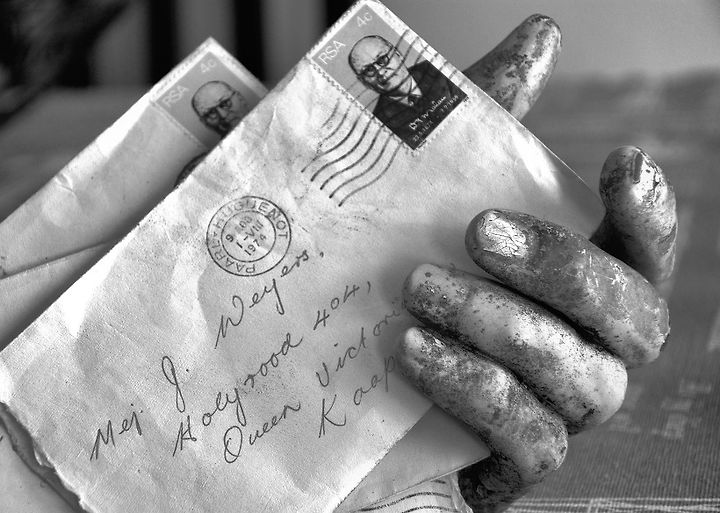 RSA 4c
RSA 4c
PAARL-HUGUENOT
9 00
1-VIII
1974
Mej. J. Weyers,
Holyrood 404,
Queen Victoria
Kaap